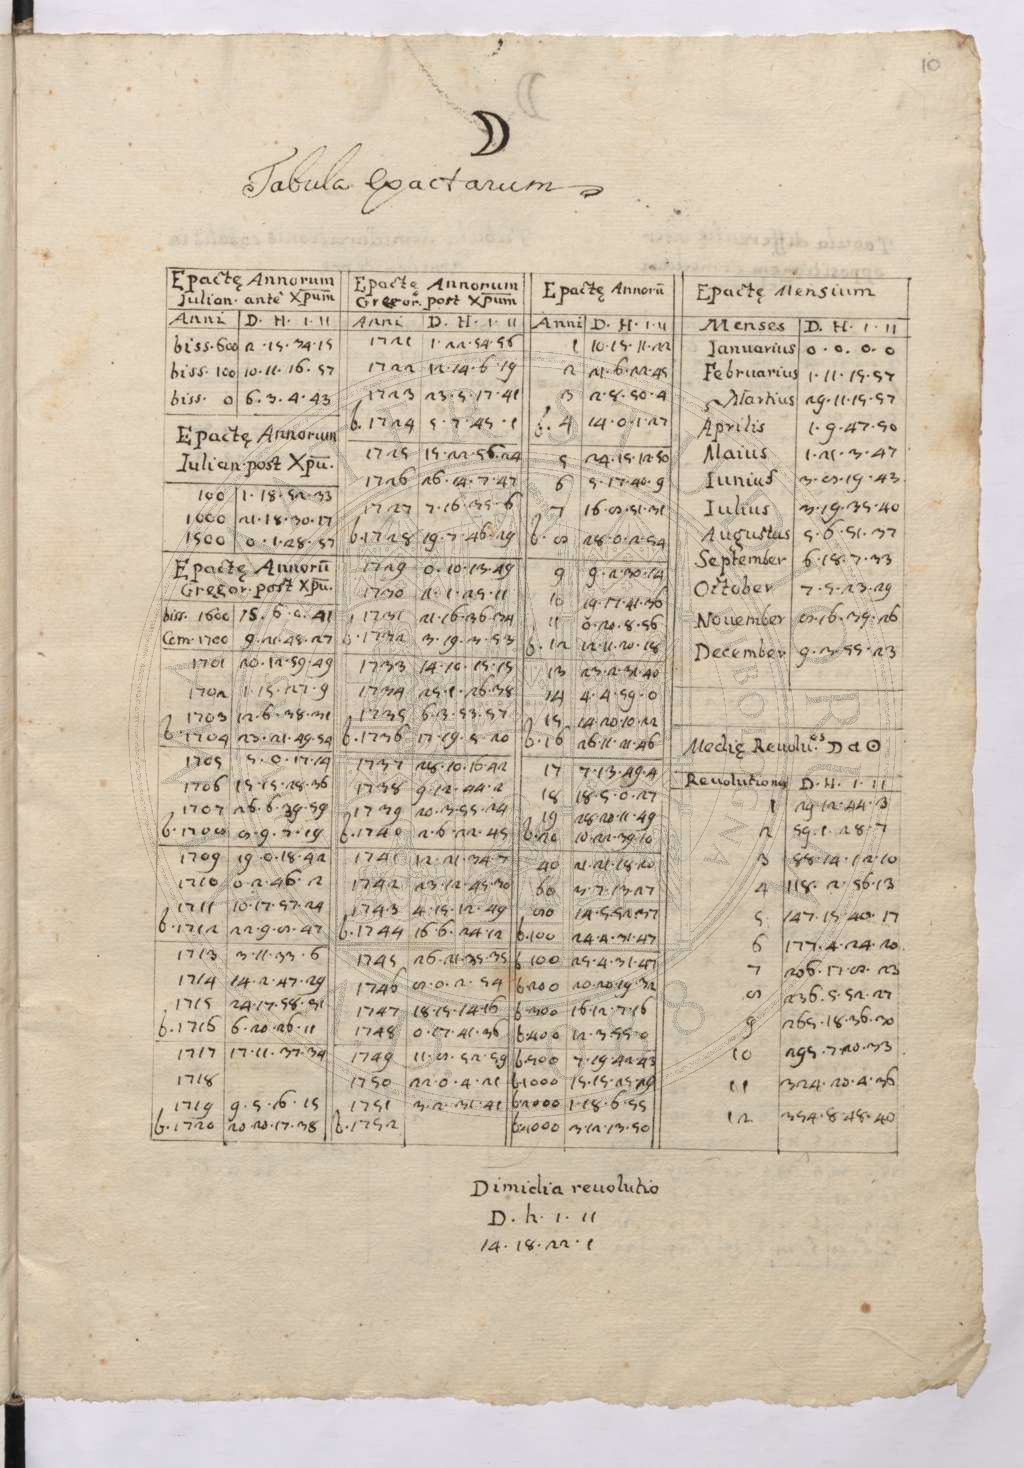 10
Tabula Epactarum
Epactę Annorum
Iulian. ante Xpum̄
Anni D. H. I. II
biss. 600 2. 15. 34. 15
biss. 100 10. 11. 16. 57
biss. 0 6. 3. 4. 43
Epactę Annorum
Iulian. post Xpū.
100 1. 18. 52. 33
1000 21. 18. 30. 17
1500 0. 1. 28. 57
Epactę Annorū
Gregor. post Xpū.
biss. 1600
Com. 1700 9. 21. 45. 27
1701 20. 12. 59. 49
1702 1. 15. 27. 9
1703 12. 6. 38. 31
b. 1704 23. 21. 49. 54
1705 5. 0. 17. 14
1706 15. 15. 28. 36
1707 26. 6. 39. 59
b. 1708 8. 9. 7. 19
1709 19. 0. 18. 42
1710 0. 2. 46. 2
1711 10. 17. 57. 24
b. 1712 22. 9. 8. 47
1713 3. 11. 33. 6
1714 14. 2. 47. 29
1715 24. 17. 58. 51
b. 1716 6. 20. 26. 11
1717 17. 11. 37. 34
1718
1719 9. 5. 16. 15
b. 1720 20. 20. 17. 38
Epactę Annorum
Gregor. post Xpum̄
Anni D. H. I. II
1721 1. 22. 54. 56
1722 12. 14. 6. 19
1723 23. 5. 17. 41
b. 1724 5. 7. 45. 1
1725 15. 22. 56. 24
1726 26. 14. 7. 47
1727 7. 16. 35. 6
b. 1728 19. 7. 46. 29
1729 0. 10. 13. 49
1730 11. 1. 25. 11
1731 21. 16. 36. 34
b. 1732 3. 19. 3. 53
1733 14. 10. 15. 15
1734 25. 1. 26. 38
1735 6. 3. 53. 57
b. 1736 17. 19. 5. 20
1737 28. 10. 16. 42
1738 9. 12. 44. 2
1739 20. 3. 55. 24
b. 1740 2. 6. 22. 45
1741 12. 21. 34. 7
1742 23. 12. 45. 30
1743 4. 15. 12. 49
b. 1744 16. 6. 24. 12
1745 26. 21. 35. 35
1746 8. 0. 2. 54
1747 18. 15. 14. 16
1748 0. 17. 41. 36
1749 11. 8. 52. 59
1750 22. 0. 4. 21
1751 3. 2. 31. 41
b. 1752
Epactę Annorū
Anni D. H. I. II
1 10. 15. 11. 22
2 21. 6. 22. 45
3 2. 8. 50. 4
b. 4 14. 0. 1. 27
5 24. 15. 12. 50
6 5. 17. 40. 9
7 16. 8. 51. 31
b. 8 28. 0. 2. 54
9 9. 2. 30. 14
10 19. 17. 41. 36
11 0. 20. 8. 56
b. 12 12. 11. 20. 18
13 23. 2. 31. 40
14 4. 4. 59. 0
15 14. 20. 10. 22
b. 16 26. 11. 21. 46
17 7. 13. 49. 4
18 18. 5. 0. 27
19 28. 20. 11. 49
b. 20 10. 22. 39. 10
40 21. 21. 18. 20
60 3. 7. 13. 27
80 14. 5. 52. 37
b. 100 24. 4. 31. 47
b. 100 25. 4. 31. 47
b. 200 20. 20. 19. 32
b. 300 16. 12. 7. 16
b. 400 12. 3. 55. 0
b. 500 7. 19. 42. 43
b. 1000 15. 15. 25. 29
b. 2000 1. 18. 6. 55
3. 12. 13. 50
Epactę Mensium
Menses D. H. I. II
Januarius 0. 0. 0. 0
Februarius 1. 11. 15. 57
Martius 29. 11. 15. 57
Aprilis 1. 9. 47. 50
Maius 1. 21. 3. 47
Iunius 3. 8. 19. 43
Iulius 3. 19. 35. 40
Augustus 5. 6. 51. 37
September 6. 18. 7. 33
October 7. 5. 23. 29
Nouember 8. 16. 39. 26
December 9. 3. 55. 23
Medię Reuolu.es ☽ a ☉
Reuolutiones D. H. I. II
1 29. 12. 44. 3
2 59. 1. 28. 7
3 88. 14. 12. 10
4 118. 2. 56. 13
5 147. 15. 40. 17
6 177. 4. 24. 20
7 206. 17. 8. 23
8 236. 5. 52. 27
9 265. 18. 36. 30
10 295. 7. 20. 33
11 324. 20. 4. 36
12 354. 8. 48. 40
Dimidia reuolutio
D. h. I. II
14. 18. 22. 1